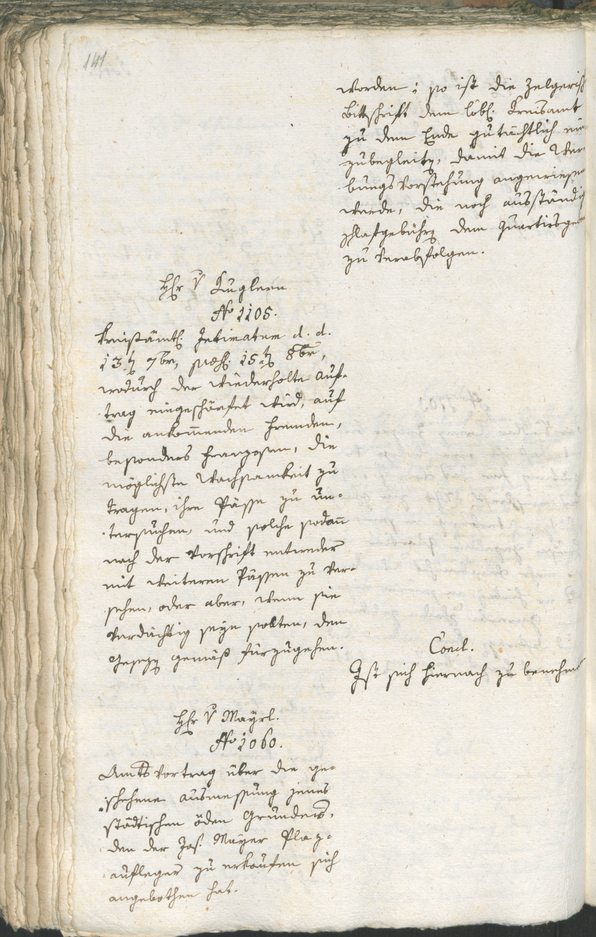 141
worden; so ist die Zelgerisch
Bittschrift dem löbl. Kreisamt
zu dem Ende gutächtlich ein
zubegleitn, damit die Wer-
bungsvorstehung angewiesen
werde, die noch ausständig
Schlafgebührn dem Quartirsge
zu verabfolgen.
Hr v Kuglern
No 1105.
Kreisämtl. Intimatum d. d.
13tn 7br, præs. 15tn 8br,
wodurch der wiederholte Auf-
trag eingeschärfet wird, auf
die ankommenden Fremden,
besonders Franzosen, die
möglichste Wachsamkeit zu
tragen, ihre Pässe zu un-
tersuchen, und solche sodann
nach der Vorschrift entweder
mit weiteren Pässen zu ver-
sehen, oder aber, wenn sie
verdächtig seyn sollten, den
Gesezn gemäß fürzugehen.
Concl.
Ist sich hiernach zu benehmen
Hr v Mayrl.
No 1060.
Amtsvortrag über die ge-
schehene Ausmessung jenes
städtischen öden Grundes,
den der Jos. Mayer Plaz-
aufleger zu erkaufen sich
angebothen hat.